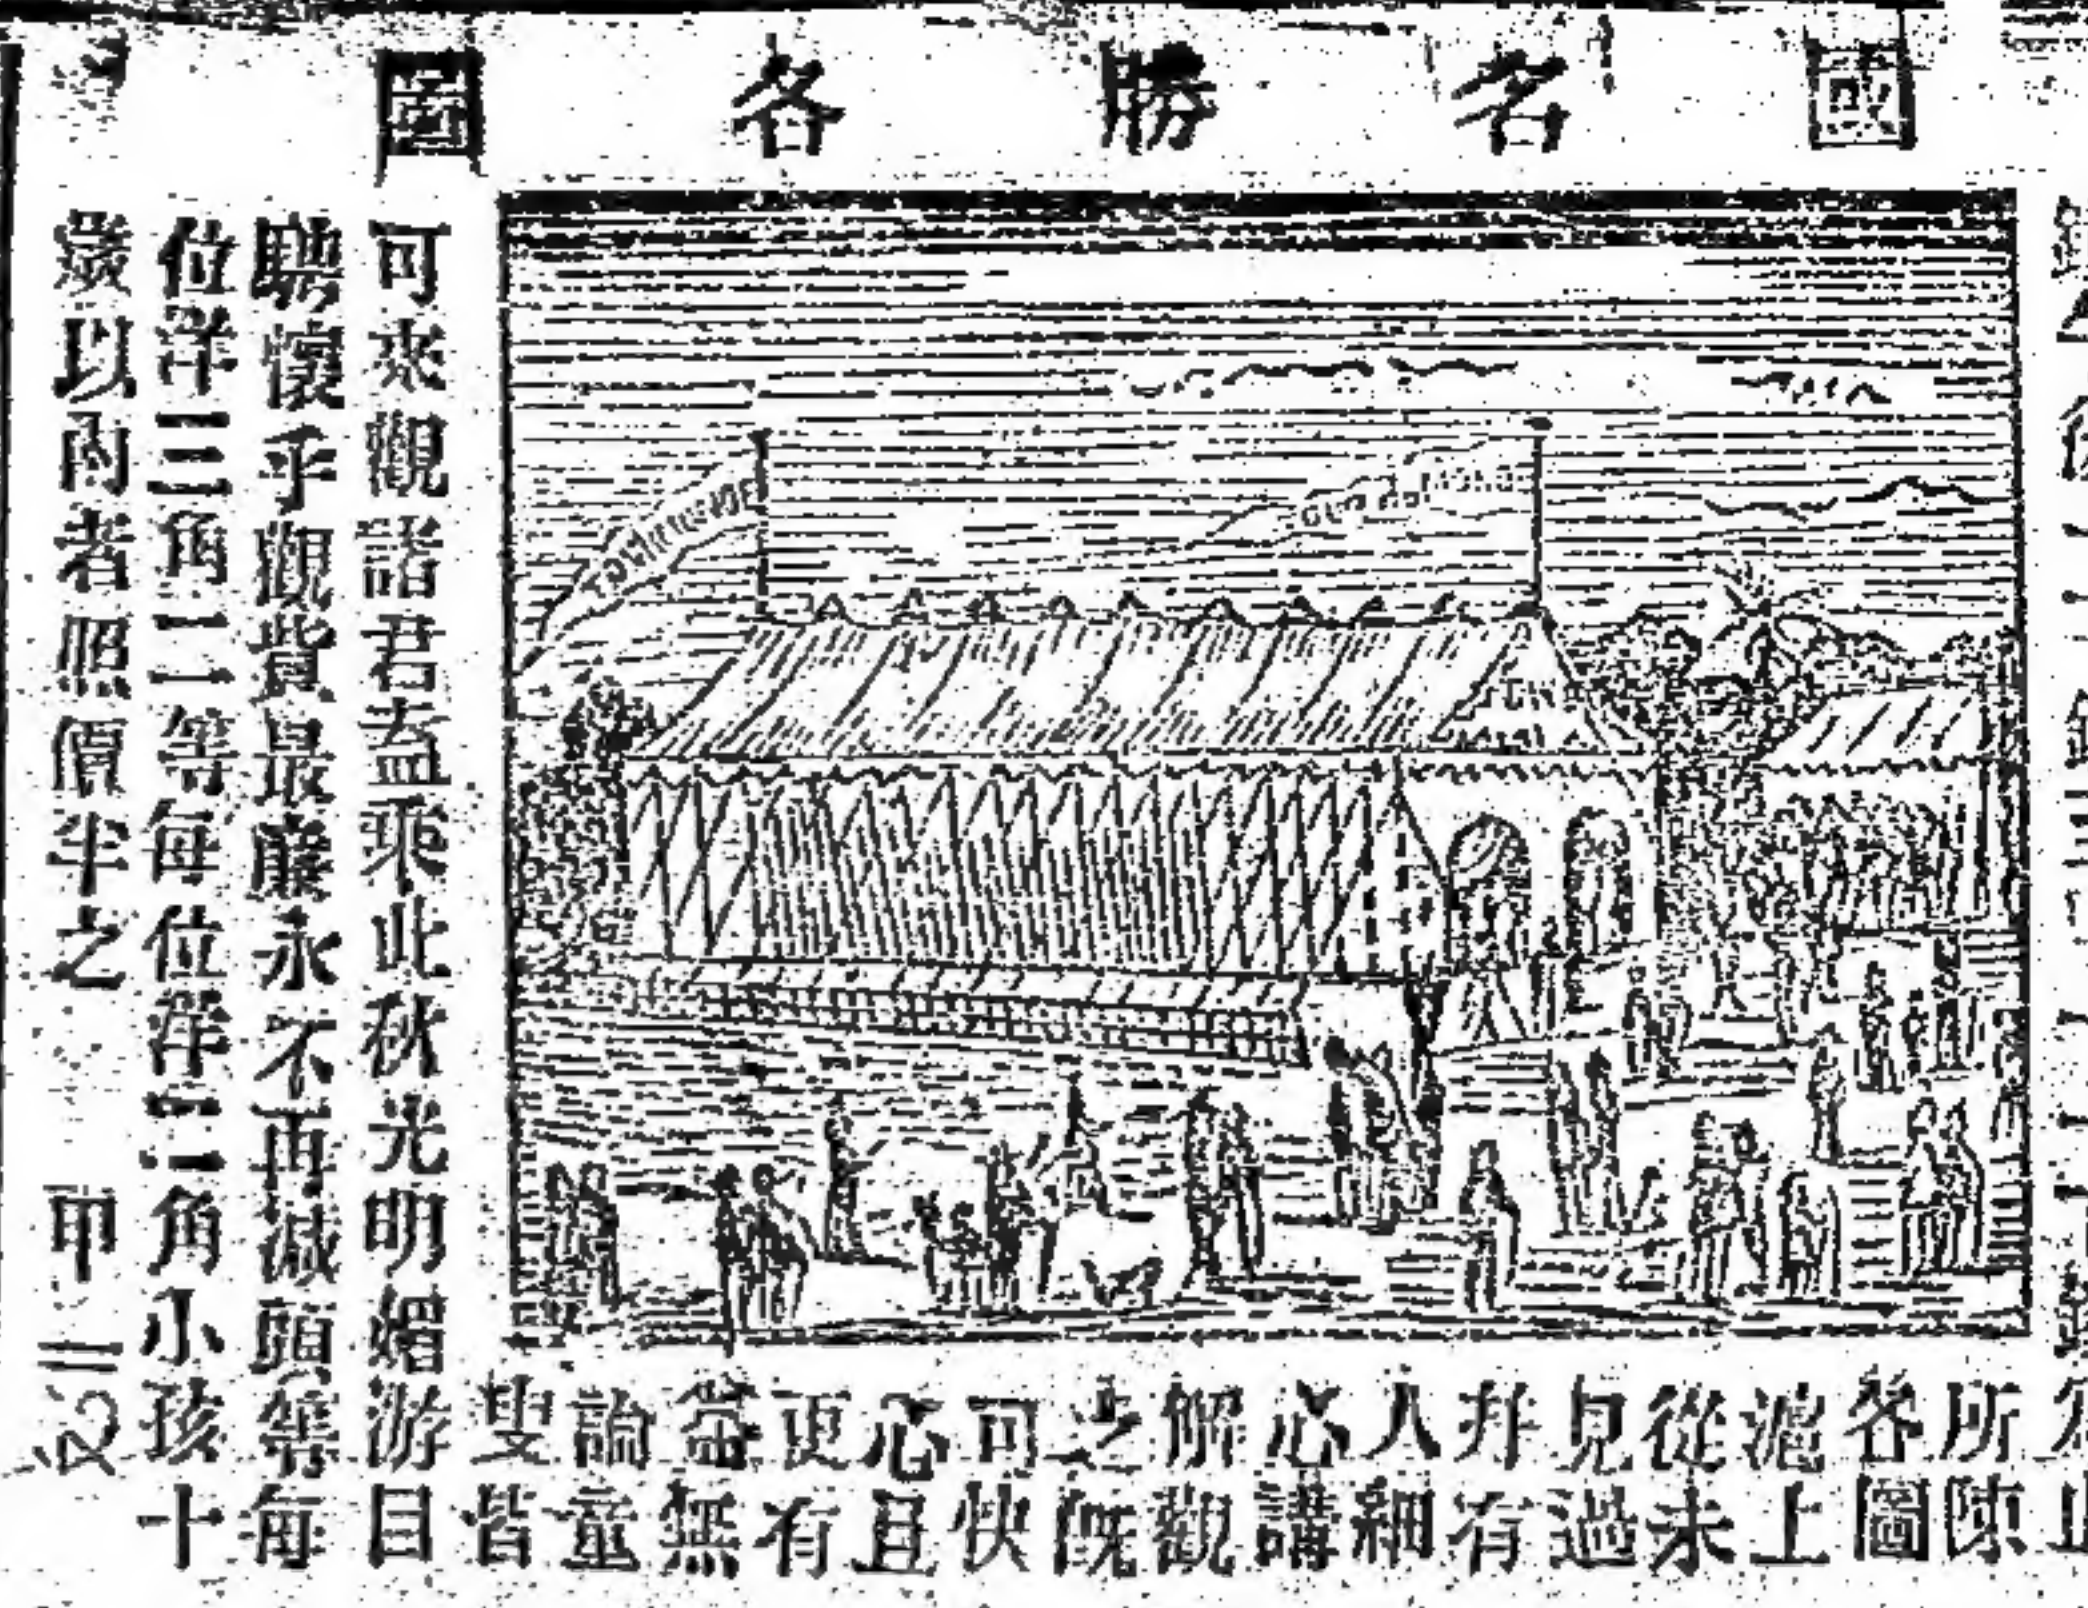 國名勝各圖
所陳
各圖
滬上
從未
見過
并有
人細
心講
解觀
之既
可快
心且
更有
益無
論童
叟皆
可來觀諸君盍乘此秋光明媚游目
騁懷乎觀貲最廉永不再減頭等每
位洋三角二等每位洋二角小孩十
歲以內者照價半之 甲